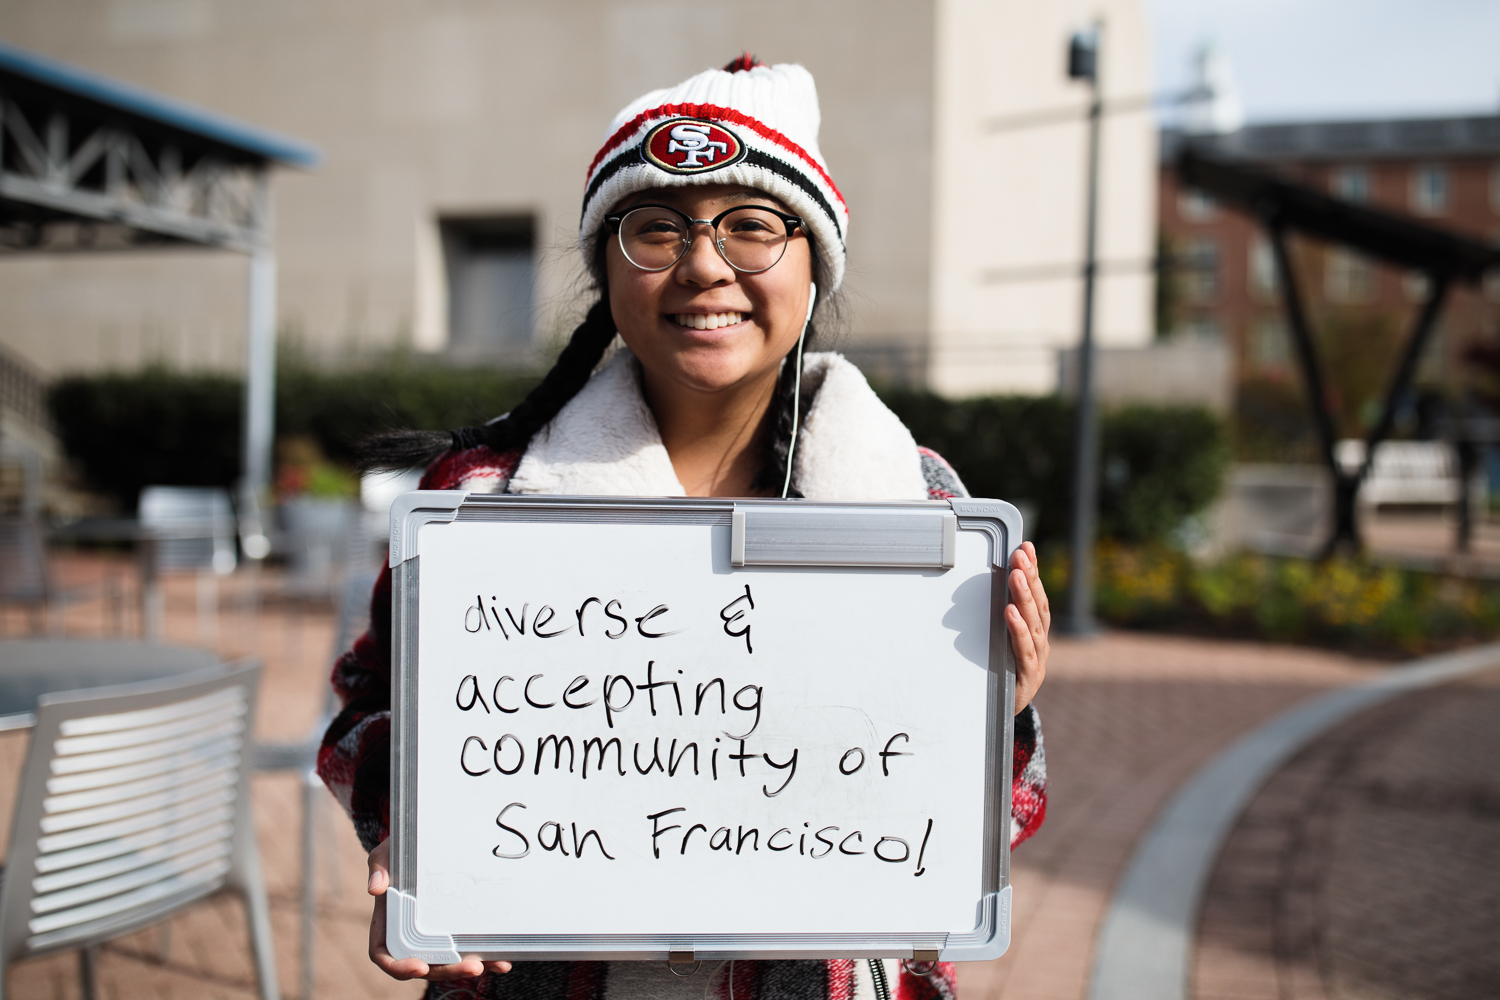 SF
diverse &
accepting
community of
San Francisco!